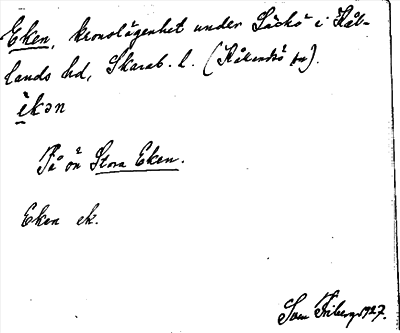 Eken, kronolägenhet under Läckö i Kål-
lands hd, Skarab. l. (Kållandsö sn).
èkən
På ön Stora Eken.
Eken ek.
Sven Friberg 1927.